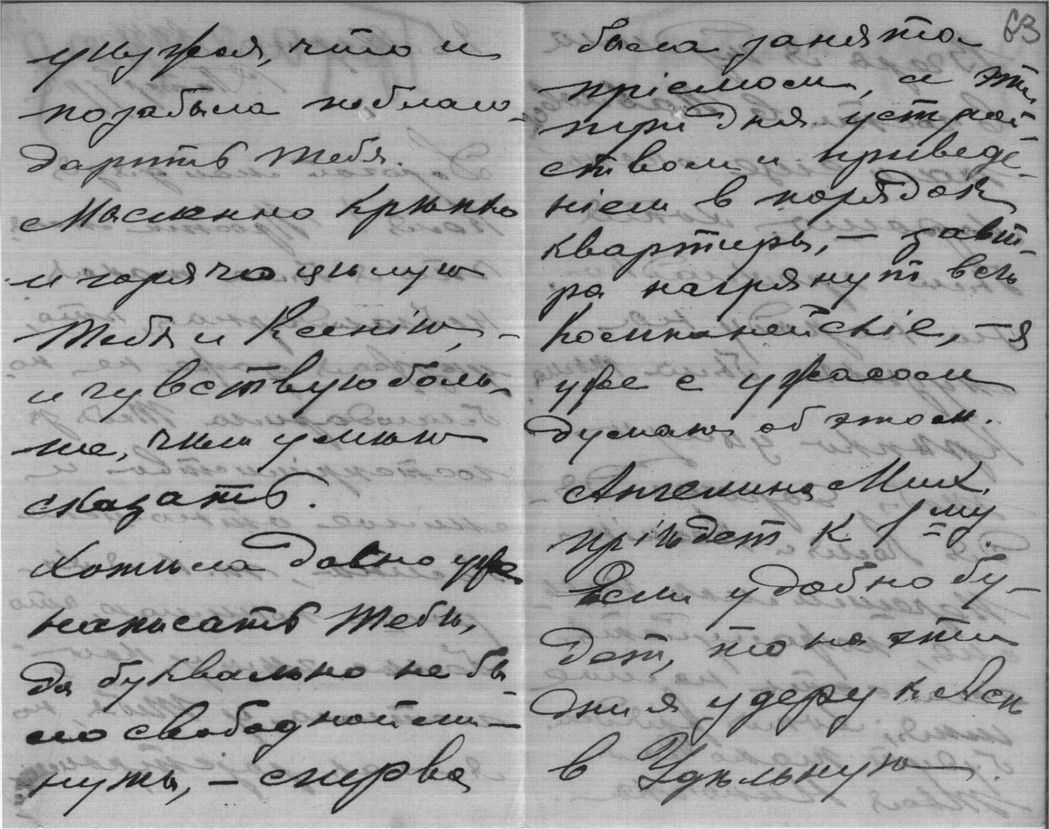 ужужая, что и
позабыла поблаго-
дарить тебя.
Мысленно крѣпко
и горячо цѣлую
Тебя и Ксенію, –
и чувствую боль-
ше, чѣм умѣю
сказать.
Хотѣла давно уже
написать тебѣ,
да буквально не бы-
ло свободной ми-
нуты, – сперва
63
была занята
пріемом, а эти
три дня устрой-
ством и приведе-
ніем в порядок
квартиры, – завт-
ра нагрянут всѣ
Компанейскіе, – я
уже с ужасом
думаю об этом.
Ангелина Мих.
пріѣдет к 1му.
Если удобно бу-
дет, то на эти
дни я удеру к Аси
в Удѣльную.